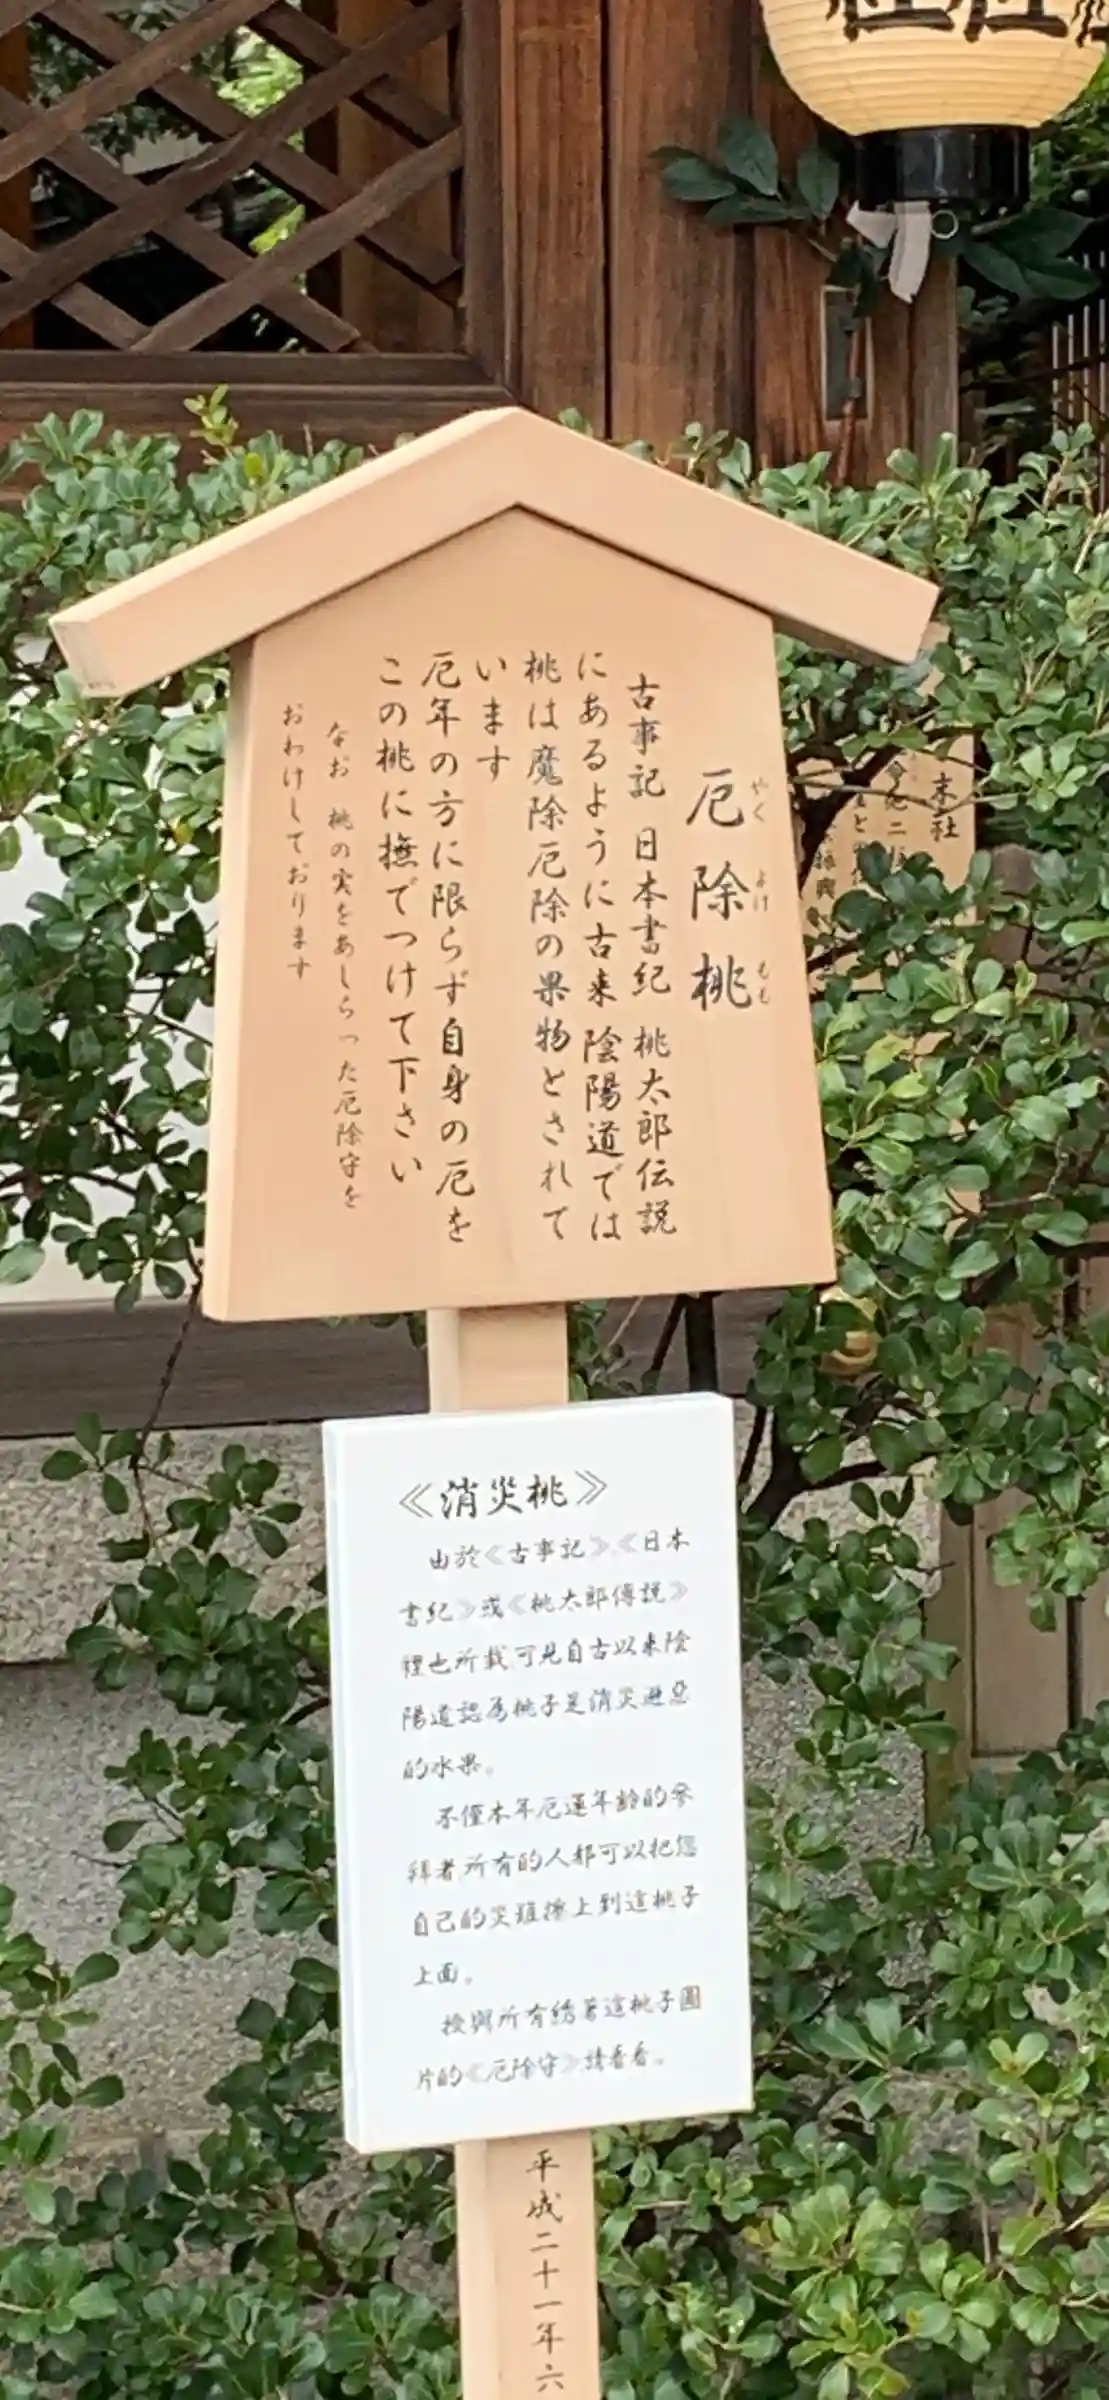 厄除桃
やく よけ もも
古事記 日本書紀 桃太郎伝説
にあるように古来 陰陽道では
桃は魔除厄除の果物とされて
います
厄年の方に限らず自身の厄を
この桃に撫でつけて下さい
なお 桃の実をあしらった厄除守を
おわけしております
末社
《消災桃》
由於《古事記》、《日本
書紀》或《桃太郎傳説》
裡也所載可見自古以来陰
陽道認為桃子是消災避惡
的水果。
不僅本年厄運年齢的參
拜者所有的人都可以把您
自己的災難擦上到這桃子
上面。
授與所有繞著這桃子圖
片的《厄除守》請看看。
平成二十一年六